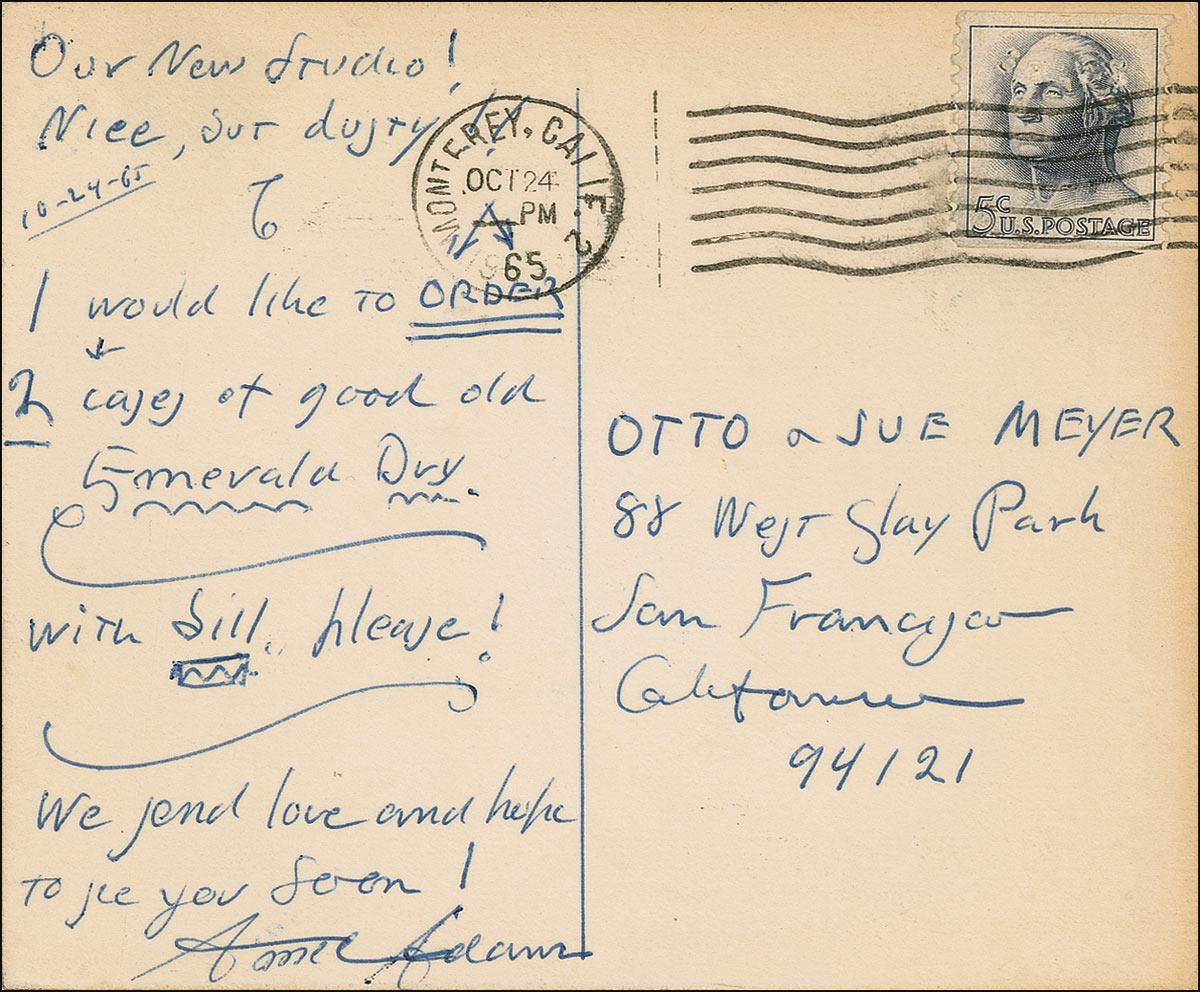 Our New Studio!
Nice, but dusty!!
10-24-65
I would like to ORDER
2 cases of good old
Emerald Dry.
with Bill, please!
We send love and hope
to see you soon!
Ansel Adams
MONTEREY, CALIF. 2
OCT 24
PM
1965
5c
U.S. POSTAGE
OTTO & SUE MEYER
88 West Clay Park
San Francisco
California
94121